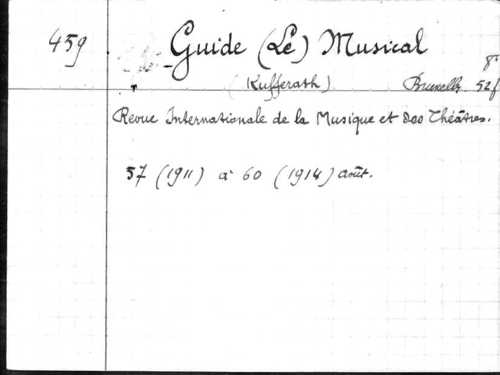 459 Guide (Le) Musical
8°
(Kufferath) Bruxelles 52 f
Revue Internationale de la Musique et des Théâtres.
57 (1911) à 60 (1914) août.